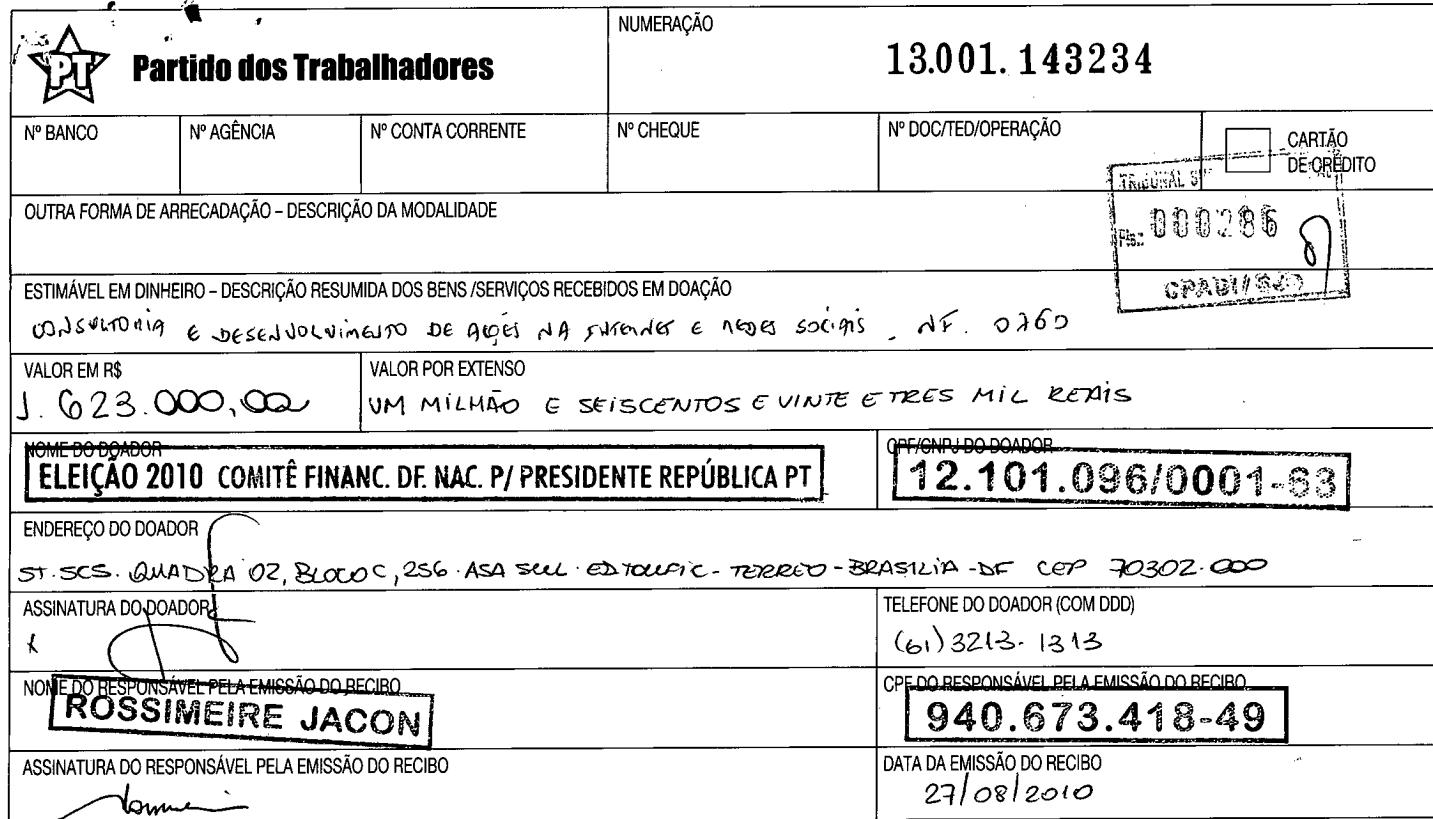 PT Partido dos Trabalhadores
NUMERAÇÃO
13.001.143234
Nº BANCO
Nº AGÊNCIA
Nº CONTA CORRENTE
Nº CHEQUE
Nº DOC/TED/OPERAÇÃO
CARTÃO
DE CRÉDITO
TRIBUNAL
Fls.: 000286
OUTRA FORMA DE ARRECADAÇÃO – DESCRIÇÃO DA MODALIDADE
ESTIMÁVEL EM DINHEIRO – DESCRIÇÃO RESUMIDA DOS BENS /SERVIÇOS RECEBIDOS EM DOAÇÃO
CONSULTORIA E DESENVOLVIMENTO DE AÇÕES NA INTERNET E REDES SOCIAIS NF. 0760
VALOR EM R$
1.623.000,00
VALOR POR EXTENSO
UM MILHÃO E SEISCENTOS E VINTE E TRES MIL REAIS
NOME DO DOADOR
ELEIÇÃO 2010 COMITÊ FINANC. DF. NAC. P/ PRESIDENTE REPÚBLICA PT
CPF/CNPJ DO DOADOR
12.101.096/0001-63
ENDEREÇO DO DOADOR
ST. SCS. QUADRA 02, BLOCO C, 256. ASA SUL. ED TOUFIC - TERREO - BRASILIA - DF CEP 70302.000
ASSINATURA DO DOADOR
x
TELEFONE DO DOADOR (COM DDD)
(61) 3213-1313
NOME DO RESPONSÁVEL PELA EMISSÃO DO RECIBO
ROSSIMEIRE JACON
CPF DO RESPONSÁVEL PELA EMISSÃO DO RECIBO
940.673.418-49
ASSINATURA DO RESPONSÁVEL PELA EMISSÃO DO RECIBO
DATA DA EMISSÃO DO RECIBO
27/08/2010